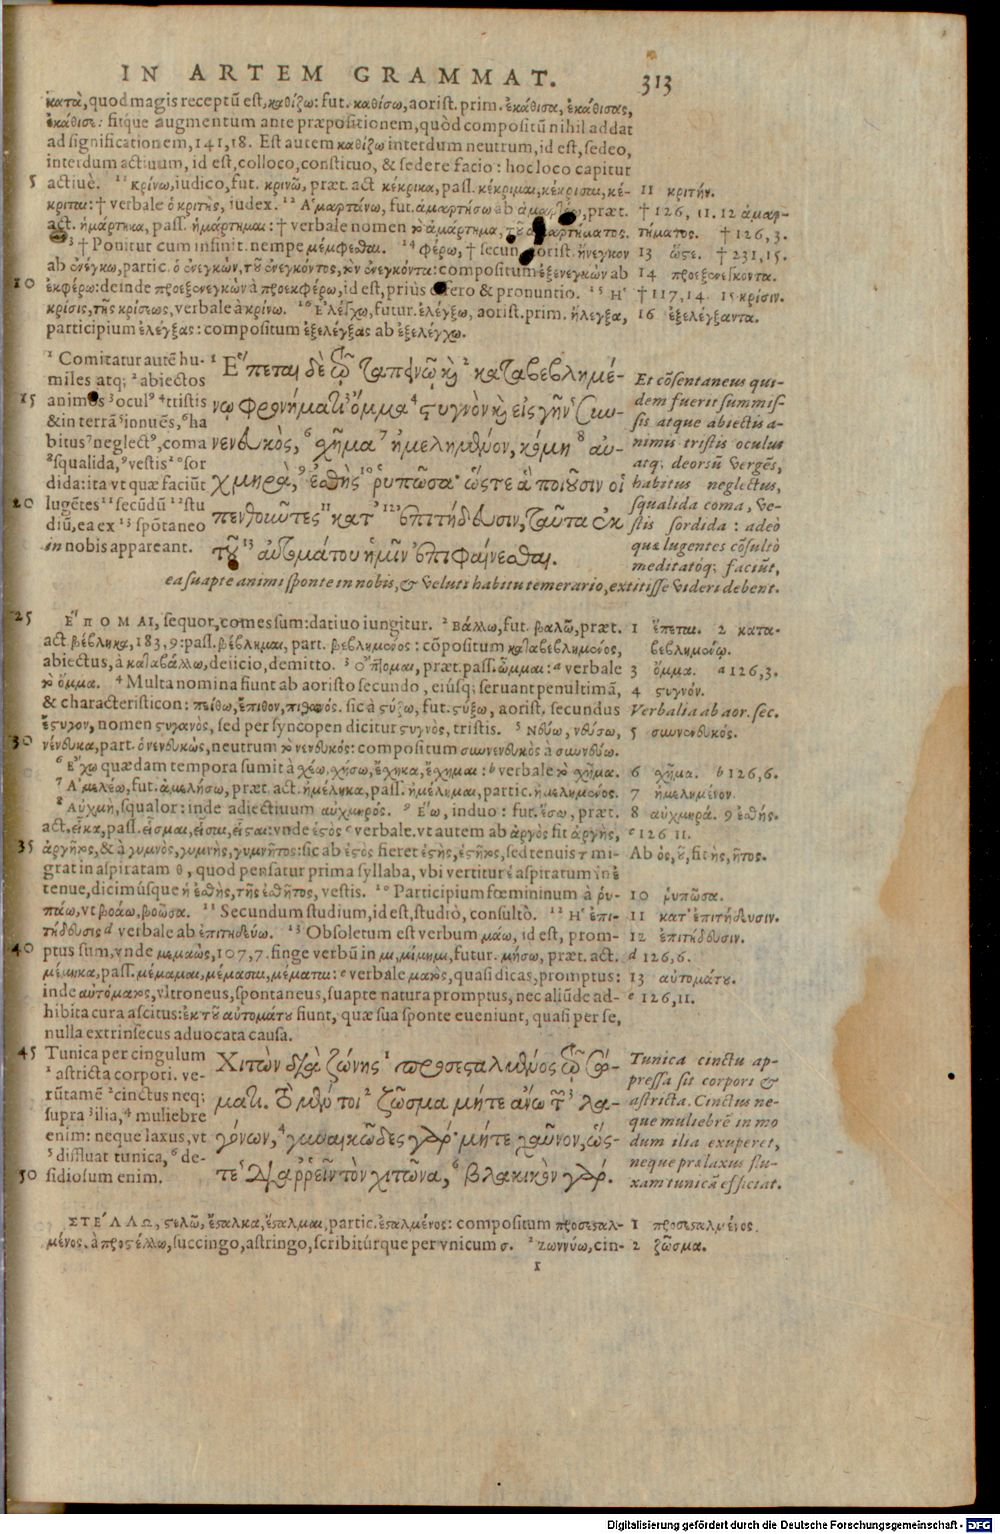 IN ARTEM GRAMMAT. 313
κατὰ, quod magis receptū est, καθίζω: fut. καθίσω, aorist. prim. ἐκάθισα, ἐκάθισας,
ἐκάθισε: fitque augmentum ante præpositionem, quòd compositū nihil addat
ad significationem, 141, 18. Est autem καθίζω interdum neutrum, id est, sedeo,
interdum actiuum, id est, colloco, constituo, & sedere facio: hoc loco capitur
5 actiuè. 11 κρίνω, iudico, fut. κρινῶ, præt. act κέκρικα, pass. κέκριμαι, κέκρισαι, κέ- 11 κριτήν.
κριται: † verbale ὁ κριτὴς, iudex. 12 Ἁμαρτάνω, fut. ἁμαρτήσω ab præt. † 126, 11. 12 ἁμαρ-
act. ἡμάρτηκα, pass. ἡμάρτημαι: † verbale nomen τὸ ἁμάρτημα, τοῦ ἁμαρτήματος. τήματος. † 126, 3.
13 † Ponitur cum infinit. nempe μέμφεσθαι. 14 φέρω, † secun. aorist. ἤνεγκον 13 ὥστε. † 231, 15.
ab ἐνέγκω, partic. ὁ ἐνεγκὼν, τοῦ ἐνεγκόντος, τὸν ἐνεγκόντα: compositum ἐξενεγκὼν ab 14 προεξενεγκόντα.
10 ἐκφέρω: deinde προεξενεγκὼν à προεκφέρω, id est, priùs effero & pronuntio. 15 Ἡ † 117, 14. 15 κρίσιν.
κρίσις, τῆς κρίσεως, verbale à κρίνω. 16 Ἐλέγχω, futur. ἐλέγξω, aorist. prim. ἤλεγξα, 16 ἐξελέγξαντα.
participium ἐλέγξας: compositum ἐξελέγξας ab ἐξελέγχω.
1 Comitatur autē hu-
miles atq; 2 abiectos
15 animos 3 ocul9 4 tristis
& in terrā 5 innuēs, 6 ha
bitus 7 neglect9, coma
8 squalida, 9 vestis 10 sor
dida: ita vt quæ faciūt
20 lugētes 11 secūdū 12 stu
diū, ea ex 13 spōtaneo
in nobis appareant.
1 Ἕπεται δὲ τῷ ταπεινῷ καὶ 2 καταβεβλημέ-
νῳ φρονήματι ὄμμα 4 στυγνὸν καὶ εἰς γῆν 5 συν-
νενευκὸς, 6 σχῆμα 7 ἠμελημένον, κόμη 8 αὐ-
χμηρὰ, 9 ἐσθὴς 10 ῥυπῶσα· ὥστε ἃ ποιοῦσιν οἱ
πενθοιῶτες 11 κατ' 12 ἐπιτήδευσιν, ταῦτα ἐκ
τοῦ 13 αὐτομάτου ἡμῖν ἐπιφαίνεσθαι.
Et cōsentaneus qui-
dem fuerit summis-
sis atque abiectis a-
nimis tristis oculus
atq; deorsū vergēs,
habitus neglectus,
squalida coma, ve-
stis sordida: adeò
quæ lugentes cōsultò
meditatóq; faciūt,
ea suapte animi sponte in nobis, & veluti habitu temerario, extitisse videri debent.
25 ἝΠΟΜΑΙ, sequor, comes sum: datiuo iungitur. 2 Βάλλω, fut. βαλῶ, præt. 1 ἕπεται. 2 κατα-
act. βέβληκα, 183, 9: pass. βέβλημαι, part. βεβλημένος: cōpositum καταβεβλημένος, βεβλημένῳ.
abiectus, à καταβάλλω, deiicio, demitto. 3 Ὄπτομαι, præt. pass. ὦμμαι: a verbale 3 ὄμμα. a 126, 3.
τὸ ὄμμα. 4 Multa nomina fiunt ab aoristo secundo, eiúsq; seruant penultimā, 4 στυγνόν.
& characteristicon: πείθω, ἔπιθον, πιθανός. sic à στύζω, fut. στύξω, aorist. secundus Verbalia ab aor. sec.
ἔστυγον, nomen στυγανὸς, sed per syncopen dicitur στυγνὸς, tristis. 5 Νεύω, νεύσω, 5 συννενευκός.
30 νένευκα, part. ὁ νενευκὼς, neutrum τὸ νενευκός: compositum συννενευκὸς à συννεύω.
6 Ἔχω quædam tempora sumit à σχέω, σχήσω, ἔσχηκα, ἔσχημαι: b verbale τὸ σχῆμα. 6 σχῆμα. b 126, 6.
7 Ἀμελέω, fut. ἀμελήσω, præt. act. ἠμέληκα, pass. ἠμέλημαι, partic. ἠμελημένος. 7 ἠμελημένον.
8 Αὐχμὴ, squalor: inde adiectiuum αὐχμηρός. 9 Ἕω, induo: fut. ἕσω, præt. 8 αὐχμηρά. 9 ἐσθής.
act. εἷκα, pass. εἷσμαι, εἷσαι, εἷσται: vnde ἑστὸς c verbale. vt autem ab ἀργὸς fit ἀργὴς, c 126 11.
35 ἀργῆτος, & à γυμνὸς, γυμνὴς, γυμνῆτος: sic ab ἑστὸς fieret ἑστὴς, ἑστῆτος, sed tenuis τ mi- Ab ὸς, οῦ, fit ὴς, ῆτος.
grat in aspiratam θ, quod pensatur prima syllaba, vbi vertitur ἑ aspiratum in ἐ
tenue, dicimúsque ἡ ἐσθὴς, τῆς ἐσθῆτος, vestis. 10 Participium fœmininum à ῥυ- 10 ῥυπῶσα.
πάω, vt βοάω, βοῶσα. 11 Secundum studium, id est, studiò, consultò. 12 Ἡ ἐπι- 11 κατ' ἐπιτήδευσιν.
τήδευσις d verbale ab ἐπιτηδεύω. 13 Obsoletum est verbum μάω, id est, prom- 12 ἐπιτήδευσιν.
40 ptus sum, vnde μεμαὼς, 107, 7. finge verbū in μι, μίμημι, futur. μήσω, præt. act. d 126, 6.
μέμηκα, pass. μέμαμαι, μέμασαι, μέμαται: e verbale ματὸς, quasi dicas, promptus: 13 αὐτομάτου.
inde αὐτόματος, vltroneus, spontaneus, suapte natura promptus, nec aliūde ad- e 126, 11.
hibita cura ascitus: ἐκ τοῦ αὐτομάτου fiunt, quæ sua sponte eueniunt, quasi per se,
nulla extrinsecus aduocata causa.
45 Tunica per cingulum
1 astricta corpori. ve-
rūtamē 2 cinctus neq;
supra 3 ilia, 4 muliebre
enim: neque laxus, vt
5 diffluat tunica, 6 de-
50 sidiosum enim.
Χιτὼν διὰ ζώνης 1 προσεσταλμένος τῷ σώ-
ματι. Τὸ μέν τοι 2 ζῶσμα μήτε ἄνω τῶν 3 λα-
γόνων, 4 γυναικῶδες γάρ· μήτε χαῦνον, ὥσ-
τε 5 διαῤῥεῖν τὸν χιτῶνα, 6 βλακικὸν γάρ.
Tunica cinctu ap-
pressa sit corpori &
astricta. Cinctus ne-
que muliebrē in mo
dum ilia exuperet,
neque prælaxus flu-
xam tunicā efficiat.
ΣΤΕΛΛΩ, στελῶ, ἔσταλκα, ἔσταλμαι, partic. ἐσταλμένος: compositum προσεσταλ- 1 προσεσταλμένος.
μένος, à προστέλλω, succingo, astringo, scribitúrque per vnicum σ. 2 ζωννύω, cin- 2 ζῶσμα.
x
Digitalisierung gefördert durch die Deutsche Forschungsgemeinschaft - DFG